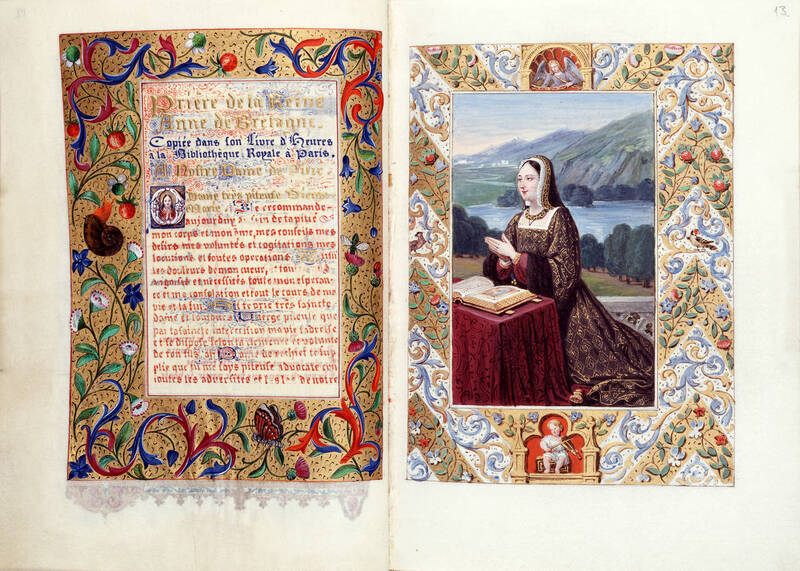 Prière de la Reine
Anne de Bretagne.
Copiée dans son Livre d'Heures
à la Bibliothèque Royale à Paris.
A Nostre Dame de
très piteuse Vierge
Marie Je recommande
aujourdhuy sein de ta pitié
mon corps et mon âme, mes conseils mes
désirs mes voluntés et cogitations mes
locutions et toutes operations.
les douleurs de mon cueur,
et necessités toute mon esperan
ce et ma consolation et tout le cours de ma
vie et la fin très saincte
Vierge piteuse que
par ta saincte intercession ma vie s'adresse
et se dispose selon ta clemence et volunte
de ton fils. de rechief
plie que tu me soys piteuse advocate con
toutes les adversités et de nostre
13